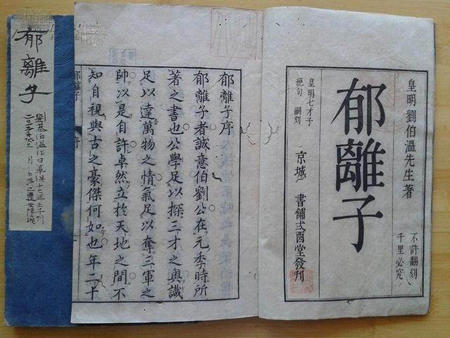 皇明劉伯溫先生著
郁離子
不許翻刻
千里必究
皇明七才子
絶句 嗣刻
京城 書鋪弎酉堂發刋
郁離子序
郁離子者誠意伯劉公在元季時所
著之書也公學足以探三才之奧識
足以達萬物之情氣足以奪三軍之
帥以是自許卓然立於天地之間不
知自視與古之豪傑何如也年二十
郁離子
郁離子